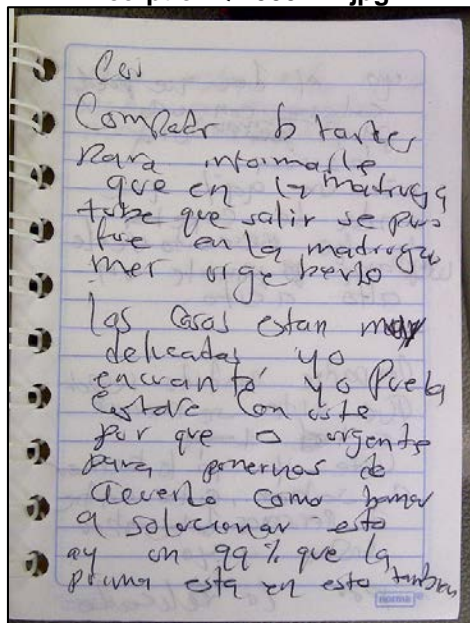 Compadr b tardes
Para informarle
que en la madruga
tube que salir se puso
fue en la madruga
mer urge berlo
las cosas estan muy
delicadas yo
encuanto yo pueda
estare con uste
por que urgente
para ponernos de
acuerdo como bamos
a solocionar esto
ay un 99% que la
prima esta en esto tambien
norma